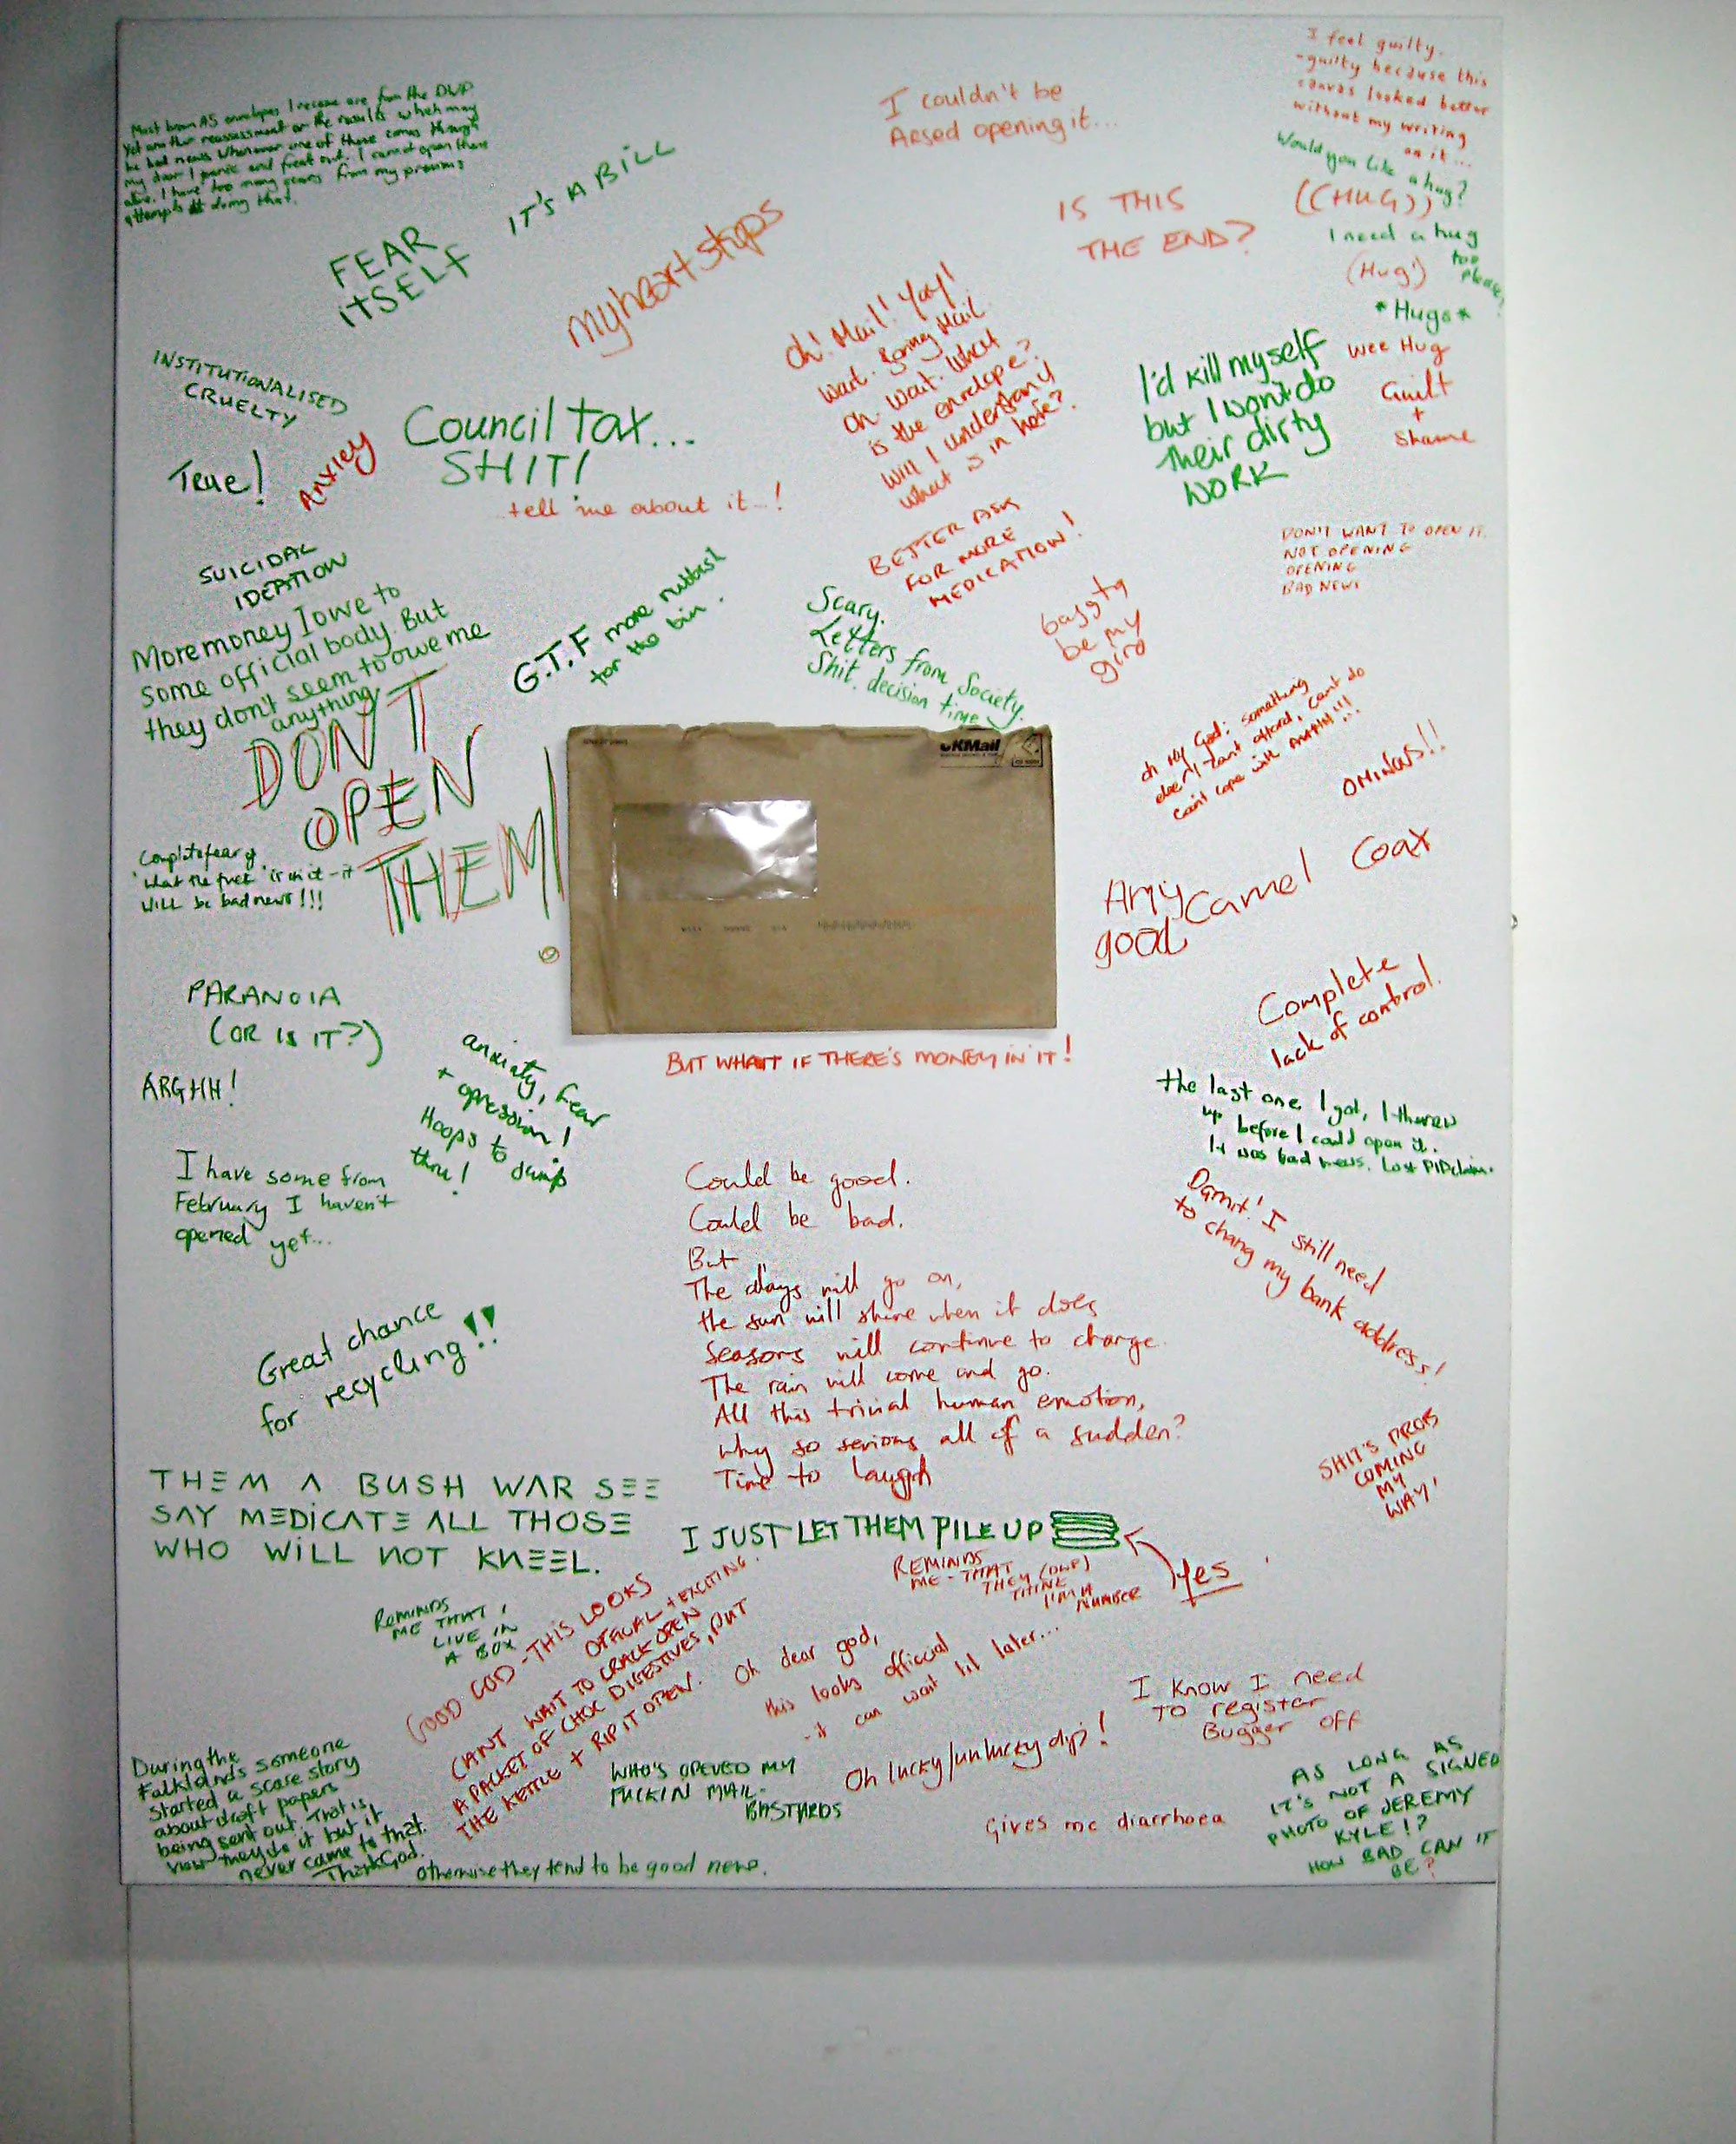 Most brown A5 envelopes I receive are from the DWP
Yet another reassessment or the results which may
be bad news. Whenever one of these comes through
my door I panic and freak out. I cannot open them
alive. I have too many scars from my previous
attempts at doing that.
IT'S A BILL
FEAR
ITSELF
My heart stops
I couldn't be
Arsed opening it...
I feel guilty.
-guilty because this
canvas looked better
without my writing
on it...
Would you like a hug?
((HUG))
I need a hug
too
please!
(Hug!)
*Hugs*
Wee Hug
Guilt
+
Shame
IS THIS
THE END?
Oh! Mail! Yay!
Wait. Boring Mail
Oh. Wait. What
is the envelope?
Will I understand
what is in here?
I'd kill myself
but I won't do
their dirty
WORK
INSTITUTIONALISED
CRUELTY
True!
Anxiey
Council tax...
SHIT!
...tell me about it...!
BETTER ASK
FOR MORE
MEDICATION!
DON'T WANT TO OPEN IT.
NOT OPENING
OPENING
BAD NEWS
SUICIDAL
IDEATION
More money I owe to
some official body. But
they don't seem to owe me
anything
G.T.F more rubbish
for the bin.
Scary.
Letters from Society.
Shit. decision time
be my
giro
DON'T
OPEN
THEM!
UKMail
oh My God: something
else I can't afford, can't do
can't cope with AAAGH!!!
OMINOUS!!
Complete fear of
'what the fuck' is in it - it
will be bad news!!!
Any
good
Camel Coax
PARANOIA
(OR IS IT?)
ARGHH!
BUT WHAT IF THERE'S MONEY IN IT!
Complete
lack of control.
anxiaty, fear
+ opression!
Hoops to Jump
thru!
the last one I got, I threw
up before I could open it.
It was bad news. Lost PIP claim.
I have some from
February I haven't
opened yet...
Damit! I still need
to chang my bank address!
Could be good.
Could be bad.
But
The days will go on,
the sun will shine when it does
Seasons will continue to change.
The rain will come and go.
All this trivial human emotion,
why so serious all of a sudden?
Time to laugh
Great chance
for recycling!!
SHIT'S PROB
COMING
MY
WAY!
THEM A BUSH WAR SEE
SAY MEDICATE ALL THOSE
WHO WILL NOT KNEEL.
I JUST LET THEM PILE UP
Yes
REMINDS
ME - THAT
THEY (DWP)
THINK
I'M A
NUMBER
REMINDS
ME THAT I
LIVE IN
A BOX
GOOD GOD - THIS LOOKS
OFFICIAL + EXCITING.
CAN'T WAIT TO CRACK OPEN
A PACKET OF CHOC DIGESTIVES, PUT
THE KETTLE + RIP IT OPEN.
Oh dear god,
this looks official
- it can wait til later...
I know I need
To register
Bugger off
During the
Falklands someone
started a scare story
about draft papers
being sent out. That is
how they do it but it
never came to that.
Thank God.
WHO'S OPENED MY
FUCKIN MAIL.
BASTARDS
Oh lucky/unlucky dip!
Gives me diarrhoea
AS LONG AS
IT'S NOT A SIGNED
PHOTO OF JEREMY
KYLE!?
HOW BAD CAN IT
BE?
Otherwise they tend to be good news.